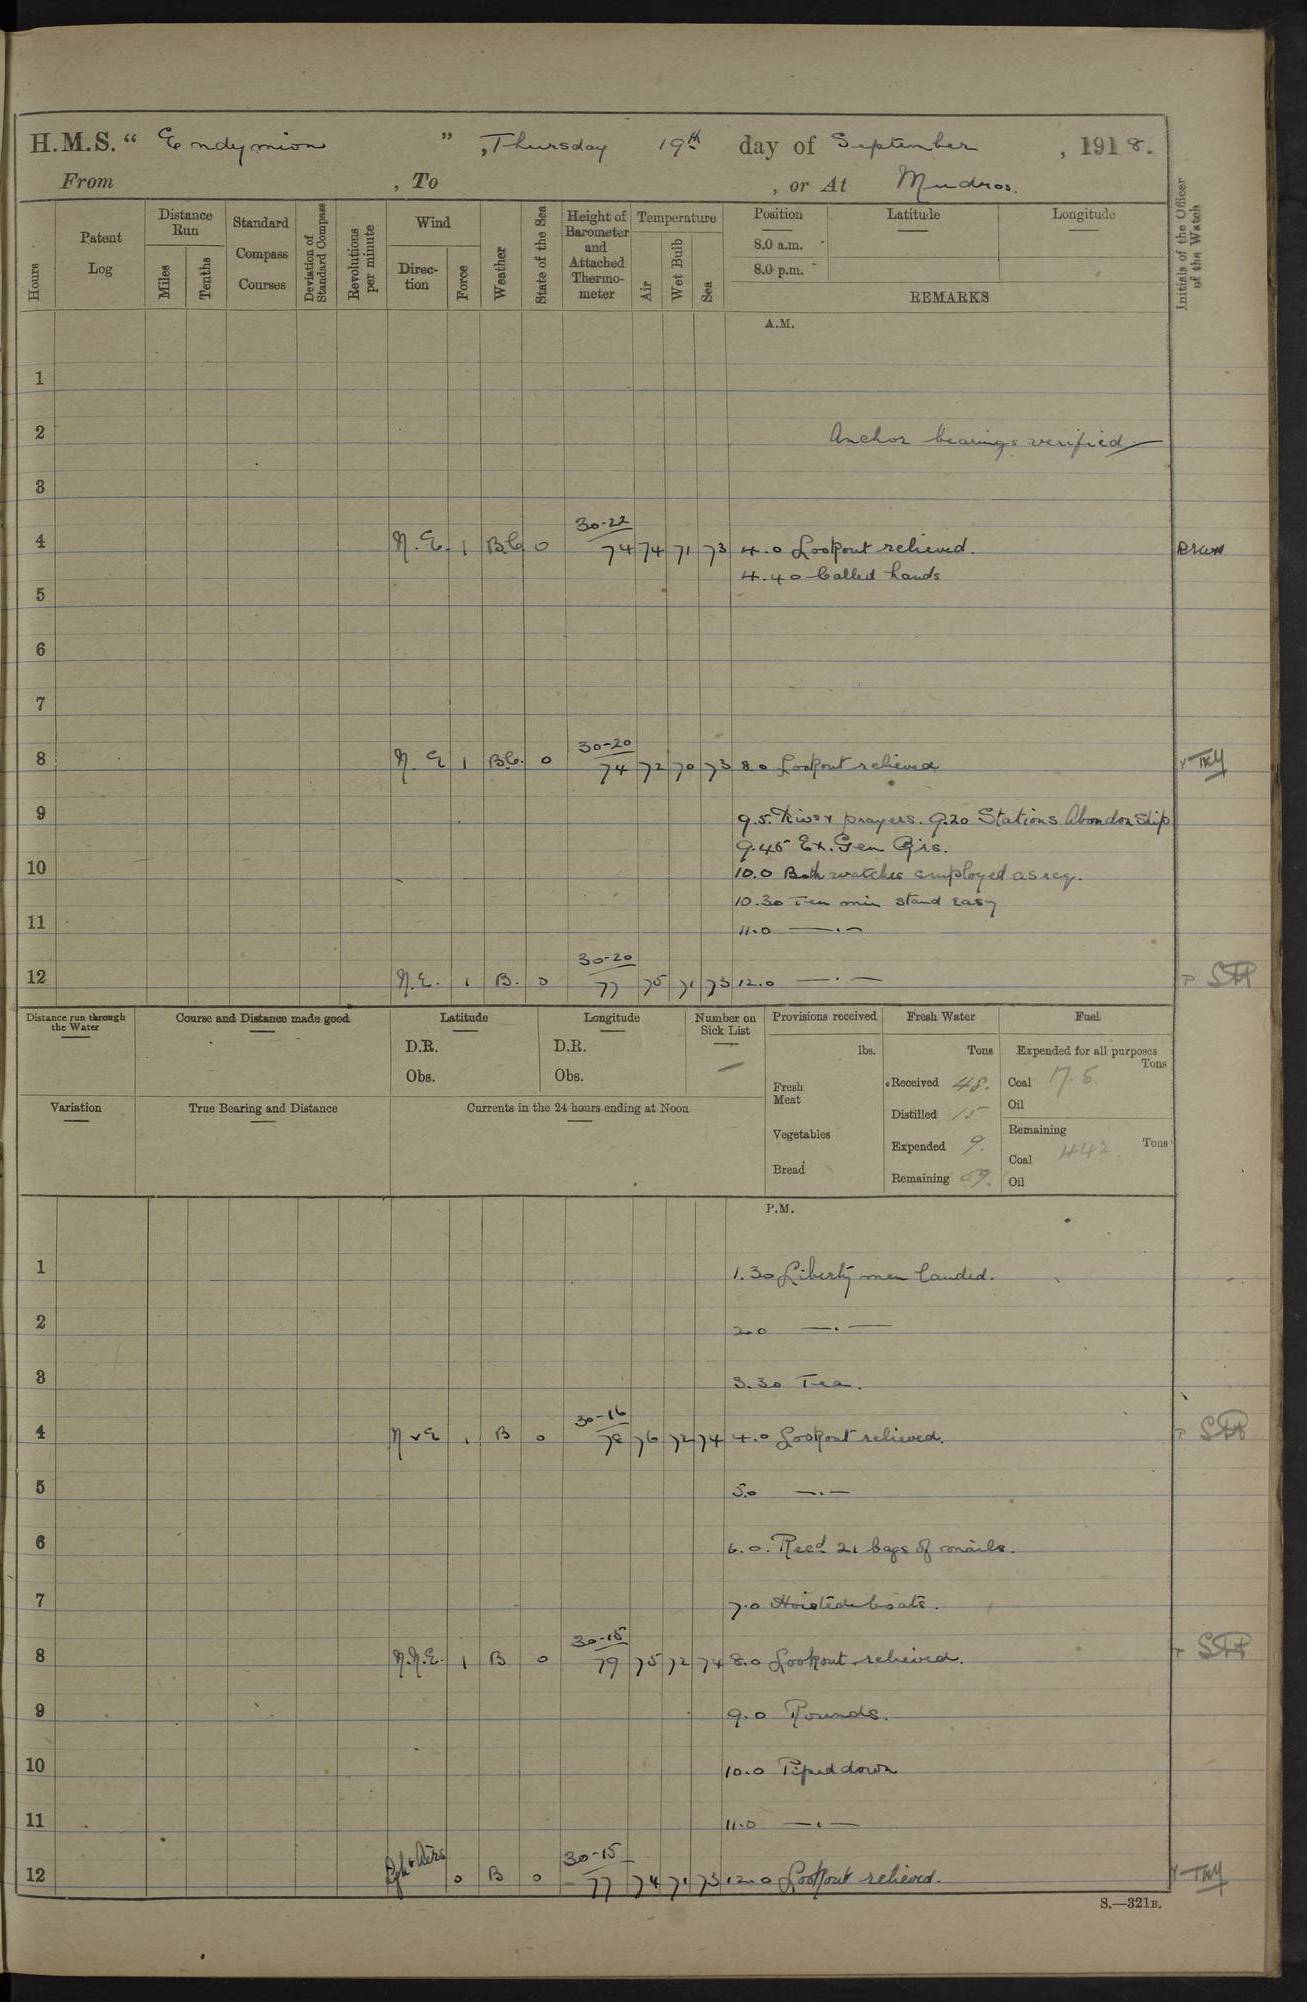 H.M.S. “ Endymion ” , Thursday 19th day of September , 1918.
From , To , or At Mudros.
Hours
Patent Log
Distance Run
Miles
Tenths
Standard Compass Courses
Deviation of Standard Compass
Revolutions per minute
Wind
Direc-tion
Force
Weather
State of the Sea
Height of Barometer and Attached Thermo-meter
Temperature
Air
Wet Bulb
Sea
Position
8.0 a.m.
8.0 p.m.
Latitude
Longitude
REMARKS
Initials of the Officer of the Watch
A.M.
1
2 Anchor bearings verified
3
30-22
4 N.E. 1 B.C. 0 74 74 71 73 4.0 Lookout relieved.
4.40 Called hands
5
6
7
30-20
8 N.E 1 B.C. 0 74 72 70 73 8.0 Lookout relieved TKY
9 9.5. prayers. 9.20 Stations Abandon Ship
9.45 Ex. Gen Qrs.
10 10.0 Both watches employed as req.
10.30 Ten min stand easy
11 11.0 —.—
30-20
12 N.E. 1 B. 0 77 75 71 73 12.0 —.—
Distance run through the Water
Course and Distance made good
Latitude
D.R.
Obs.
Longitude
D.R.
Obs.
Number on Sick List
—
Provisions received
lbs.
Fresh Meat
Vegetables
Bread
Fresh Water
Tons
Received 48.
Distilled 15
Expended 9.
Remaining 69.
Fuel
Expended for all purposes
Tons
Coal 17.5.
Oil
Remaining
Tons
Coal 442.
Oil
Variation
True Bearing and Distance
Currents in the 24 hours ending at Noon
P.M.
1 1.30 Liberty men landed.
2 2.0 —.—
3 3.30 Tea.
30-16
4 N v E 1 B 0 78 76 72 74 4.0 Lookout relieved.
5 5.0 —.—
6 6.0. Recd. 21 bags of mails.
7 7.0 Hoisted boats.
30-15
8 N.N.E. 1 B 0 79 75 72 74 8.0 Lookout relieved.
9 9.0 Rounds.
10 10.0 Piped down
11 11.0 —.—
30-15
12 Lgt Airs 0 B 0 77 74 71 73 12.0 Lookout relieved. TKY
S.—321B.